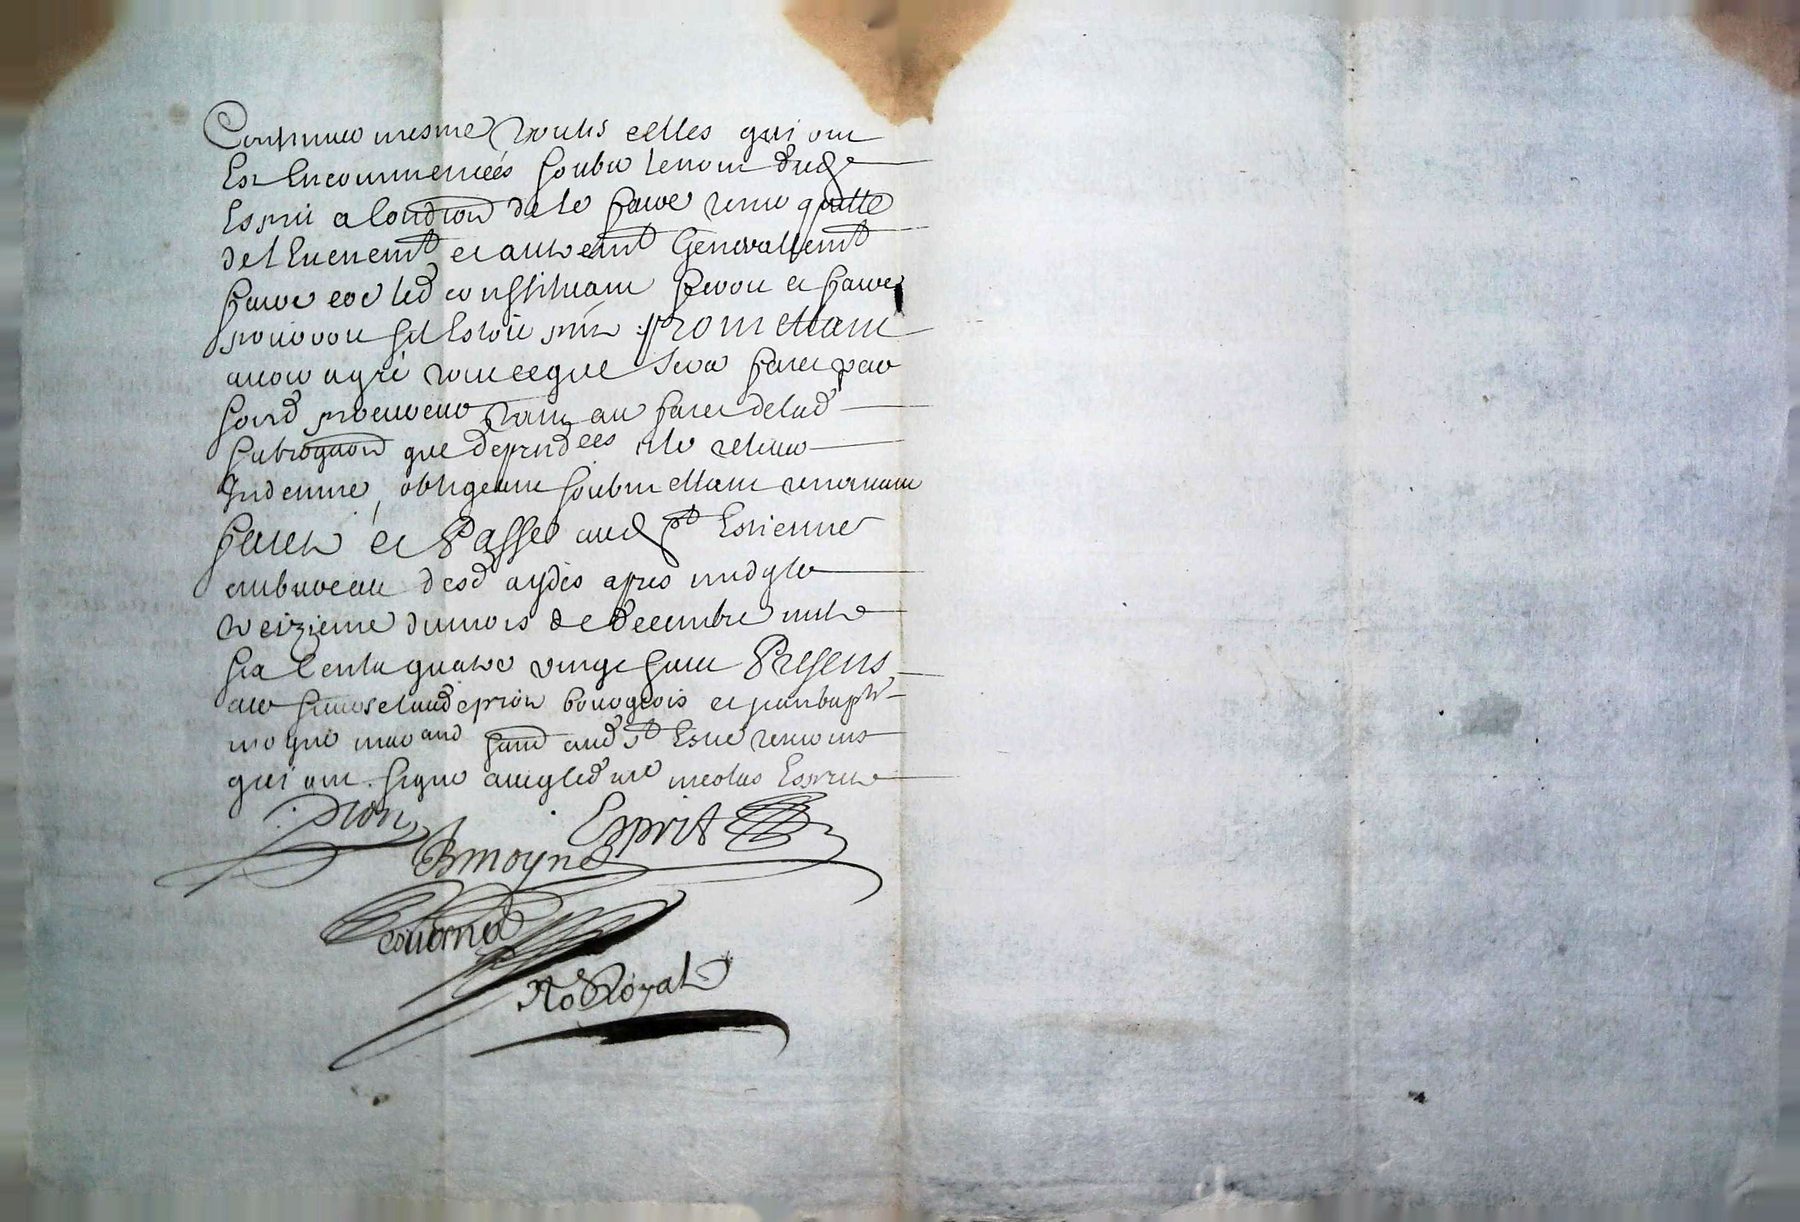 Continuer mesme toutes celles qui ont
Esté Encommencées soubz le nom dud
Esprit a condition de le faire tenir quitte
de l'Evenemt et autremt Generallemt
faire coe led constituant feroit et faire
pouroit sil Estoit pnt Promettant
avoir agré tout ce que sera faict par
sond procureur tant au faict de lad
subrogaon que dependces et le relever
Indemne, obligeant soubmettant renonceant
faict et Passé aud St Estienne
au bureau desd aydes apres midy le
treizieme du mois de decembre mil
six Cents quatre vingt sept Presens
sieur claude pion bourgeois et jean bapte
moyne marand aud St Esne temoins
qui ont signé avec led sr nicolas Esprit
Pion Esprit
B moyne
No Royal